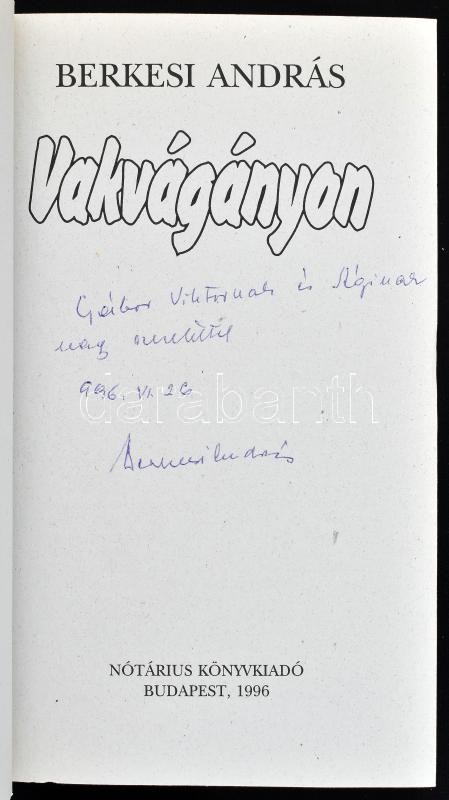 BERKESI ANDRÁS
Vakvágányon
Gábor Viktornak és Réginak
nagy szeretettel
996. VI. 26
darabanth
Berkesi András
NÓTÁRIUS KÖNYVKIADÓ
BUDAPEST, 1996